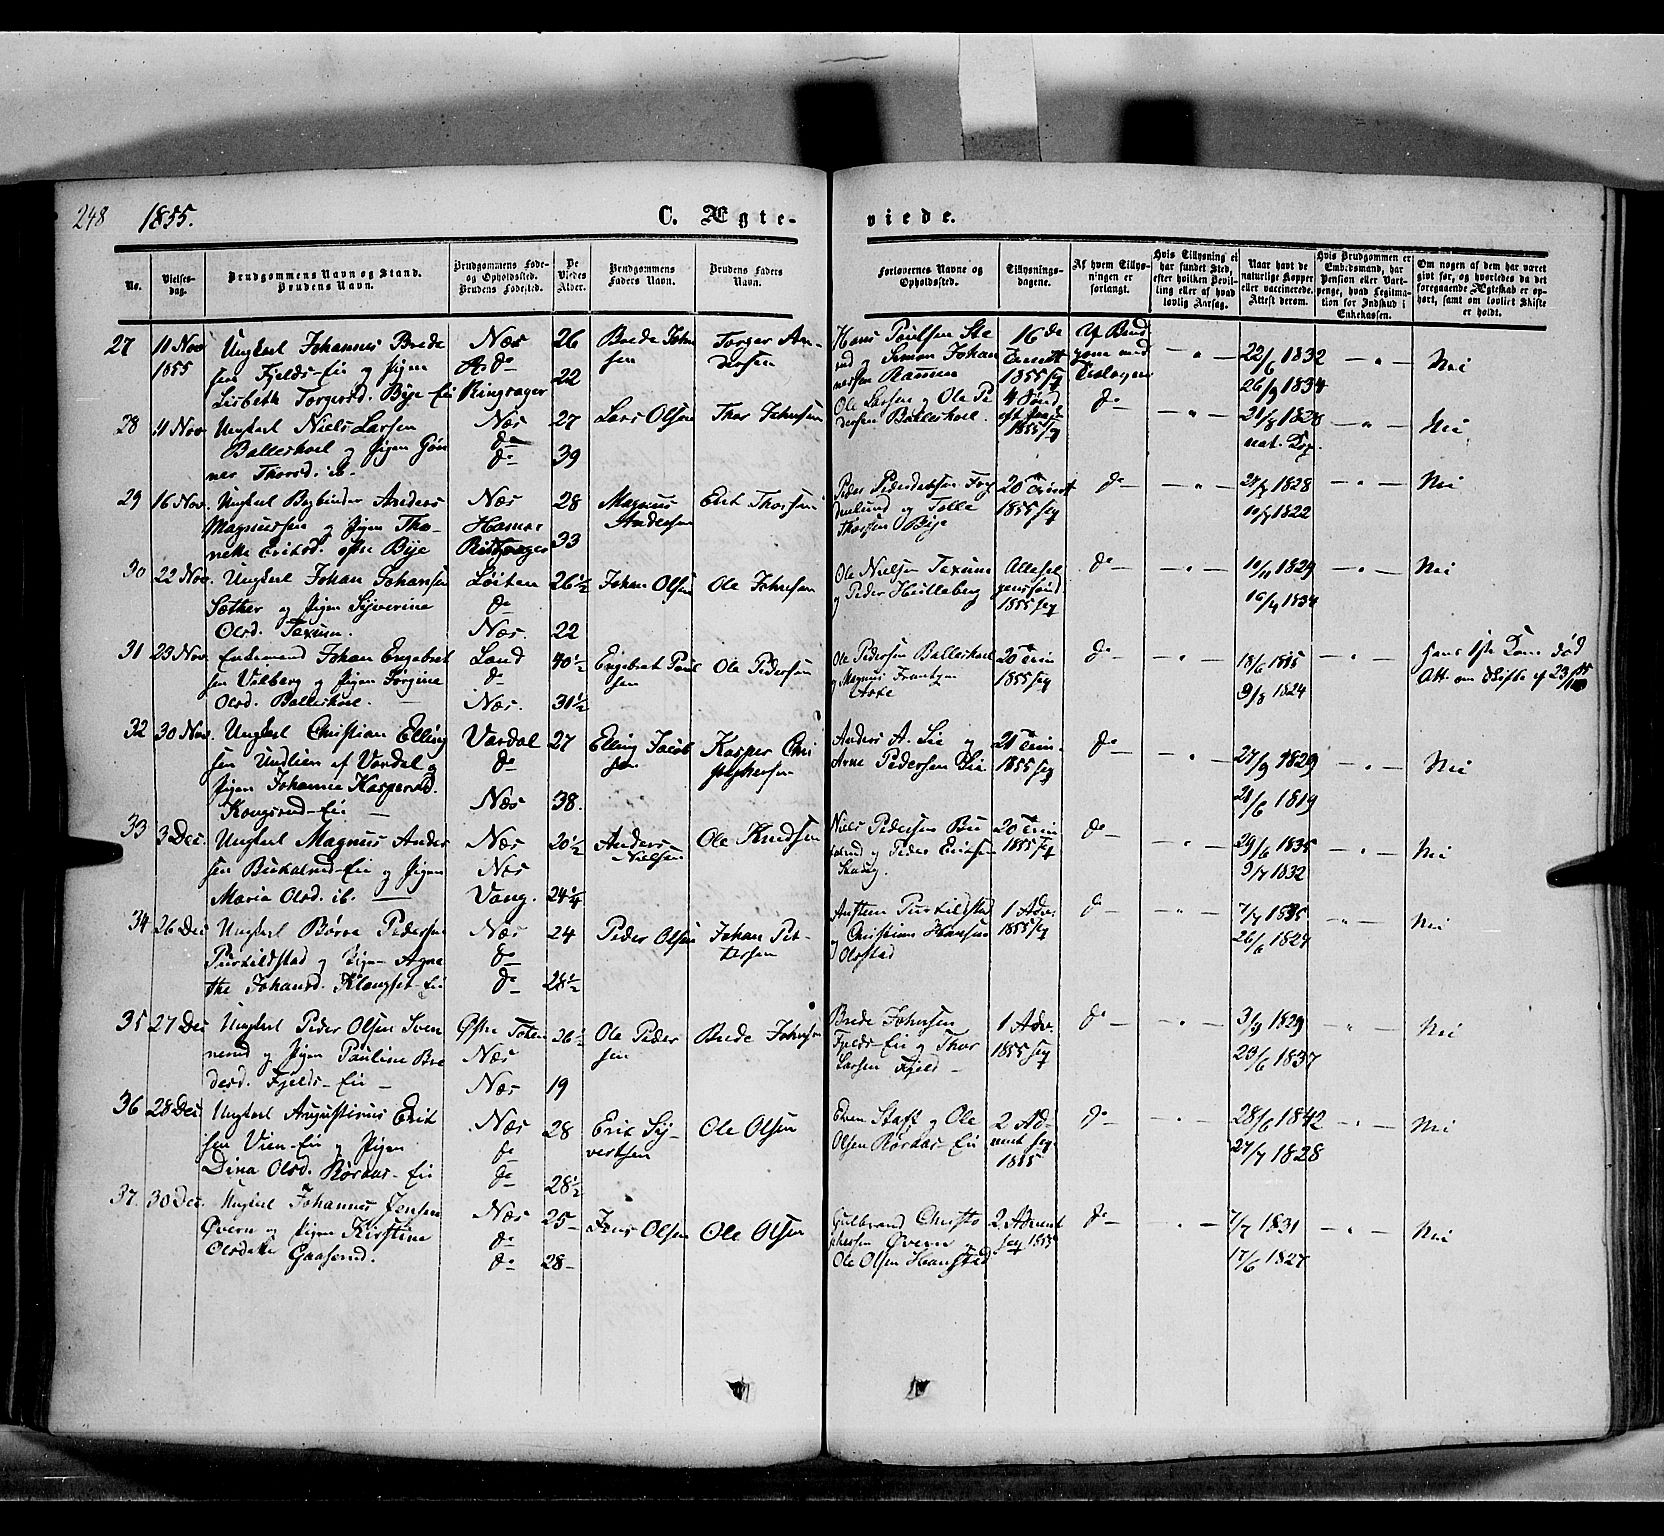 248 1855. C. Ægte- viede.
No.
Vielses-
dag.
Brudgommens Navn og Stand.
Brudens Navn.
Brudgommens Føde-
og Opholdssted.
Brudens Fødested.
De
Viedes
Alder.
Brudgommens
Faders Navn.
Brudens Faders
Navn.
Forlovernes Navne og
Opholdssted.
Tillysnings-
dagene.
Af hvem Tillys-
ningen er
forlangt.
Hvis Tillysning ei
har fundet Sted,
efter hvilken Bevil-
ling eller af hvad
lovlig Aarsag.
Naar havt de
naturlige Kopper
eller vaccinerede.
Attest derom.
Hvis Brudgommen er
Embedsmand, har
Pension eller Vart-
penge, hvad Legitima-
tion for Indskud i
Enkekassen.
Om nogen af dem har været
gift før, og hvorledes da det
foregaaende Ægteskab er op-
hørt, samt om lovligt Skifte
er holdt.
27 11 Nov
1855
Ungkarl Johannes Brede
sen Fjelds-Eie og Pigen
Lisbeth Torgersd. Bye-Eie
Næs
do
Ringsager
26
22
Brede John
sen
Torger An-
dersen
Hans Poulsen
og Simon Johan
nessen
1855
22/6 1832
26/9 1834
Nei
28 11 Nov
Ungkarl Niels Larsen
Balleshoel og Pigen Gun
ner Thorsd. ib.
Næs
do
do
27
39
Lars Olsen
Thor Johnsen
Ole Larsen og Ole Pe
dersen Balleshoel.
1855
do
21/8 1828
nat. Kop.
Nei
29 16 Nov.
Ungkarl Anders
Magnussen og Pigen Tho
nette Eriksd. Bye
Næs
Hamar
28
33
Magnus
Andersen
Erik Thorsen
og Tolle
Thorsen Bye
20 Trinit
1855
do
1828
1822
Nei
30 22 Nov.
Ungkarl Johan Johansen
Sæther og Pigen Syverine
Olsd. Texum.
Løiten
do
Næs.
26 1/2
22
Johan Olsen
Ole Johnsen
Ole Nielsen Texum
og Peder Heilleberg
Allehel
gensSønd.
1855
do
10/11 1829
16/4 1834
Nei
31 23 Nov.
Enkemand Johan Engebret
sen Vilberg og Pigen Jørgine
Olsd. Balleshoel.
Land
do
Næs.
40 1/2
31 1/2
Engebret Poul
sen
Ole Pedersen
Ole Pedersen Balleshoel
og Magnus Frantzen
20 Trin
1855
do
18/6 1815
9/8 1824
Hans 1ste Kone død
Att. om Skifte af
32 30 Nov.
Ungkarl Christian Elling
sen Undlien af Vardal og
Pigen Johanne Kaspersd.
Kongsrud-Eie
Vardal
do
Næs
27
38.
Elling Jacob
sen
Kasper Chri
stophersen
Anders A. Lie og
Arne Pedersen Lie
21 Trin
1855
do
27/9 1829
21/6 1819
Nei
33 3 Dec.
Ungkarl Magnus Anders
sen og Pigen
Maria Olsd. ib.
Næs
Næs
Vang.
20 1/2
24 1/4
Anders
Nielsen
Ole Knudsen
Niels Pedersen
og Peder Eriksen
20 Trin
1855
do
29/6 1835
9/7 1832
Nei
34 26 Dec
Ungkarl Børre Pedersen
Purkildstad og Pigen Agne
the Johansd. Klampet-Eie
Næs
do
do
24
28 1/2
Peder Olsen
Johan Pet-
tersen
Austen Purkildstad
og Christian Hansen
Olsstad
1 Adv.
1855
do
7/7 1835
26/6 1827
Nei
35 27 Dec
Ungkarl Peder Olsen Sven
nerud og Pigen Pauline Bre
desd. Fjelds-Eie
Østre Toten
Næs
Næs
26 1/2
19
Ole Peder
sen
Brede Johnsen
Brede Johnsen
Fjelds-Eie og Thor
Larsen Fjeld
1 Adv.
1855
do
3/9 1829
23/6 1837
Nei
36 28 Dec.
Ungkarl Augustinus Erik
sen Vien-Eie og Pigen
Dina Olsd. Rørdar-Eie
Næs
do
do
28
28 1/2
Erik Sy-
vertsen
Ole Olsen
Even Staff og Ole
Olsen Rørdar-Eie
2 Ad-
vent
1855
do
28/6 1842
27/7 1828
Nei
37. 30 Dec.
Ungkarl Johannes Jensen
Øvern og Pigen Kirstine
Olsdatte Gaaserud.
Næs
do
do
25
28
Jens Olsen
Ole Olsen
Gulbrand Christo
phersen Øvern og
Ole Olsen Hanstad
2 Advent
1855
do
7/7 1831
17/6 1827
Nei